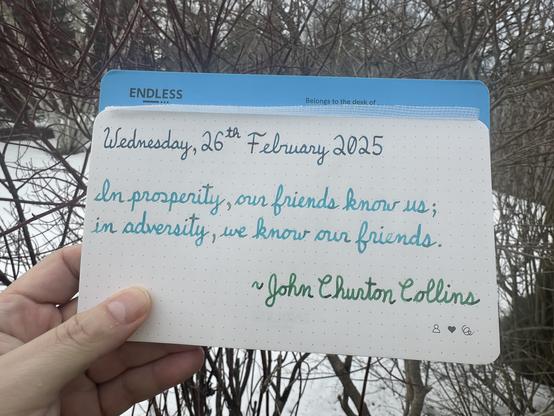 ENDLESS
Belongs to the desk of
Wednesday, 26th February 2025
In prosperity, our friends know us;
in adversity, we know our friends.
~John Churton Collins